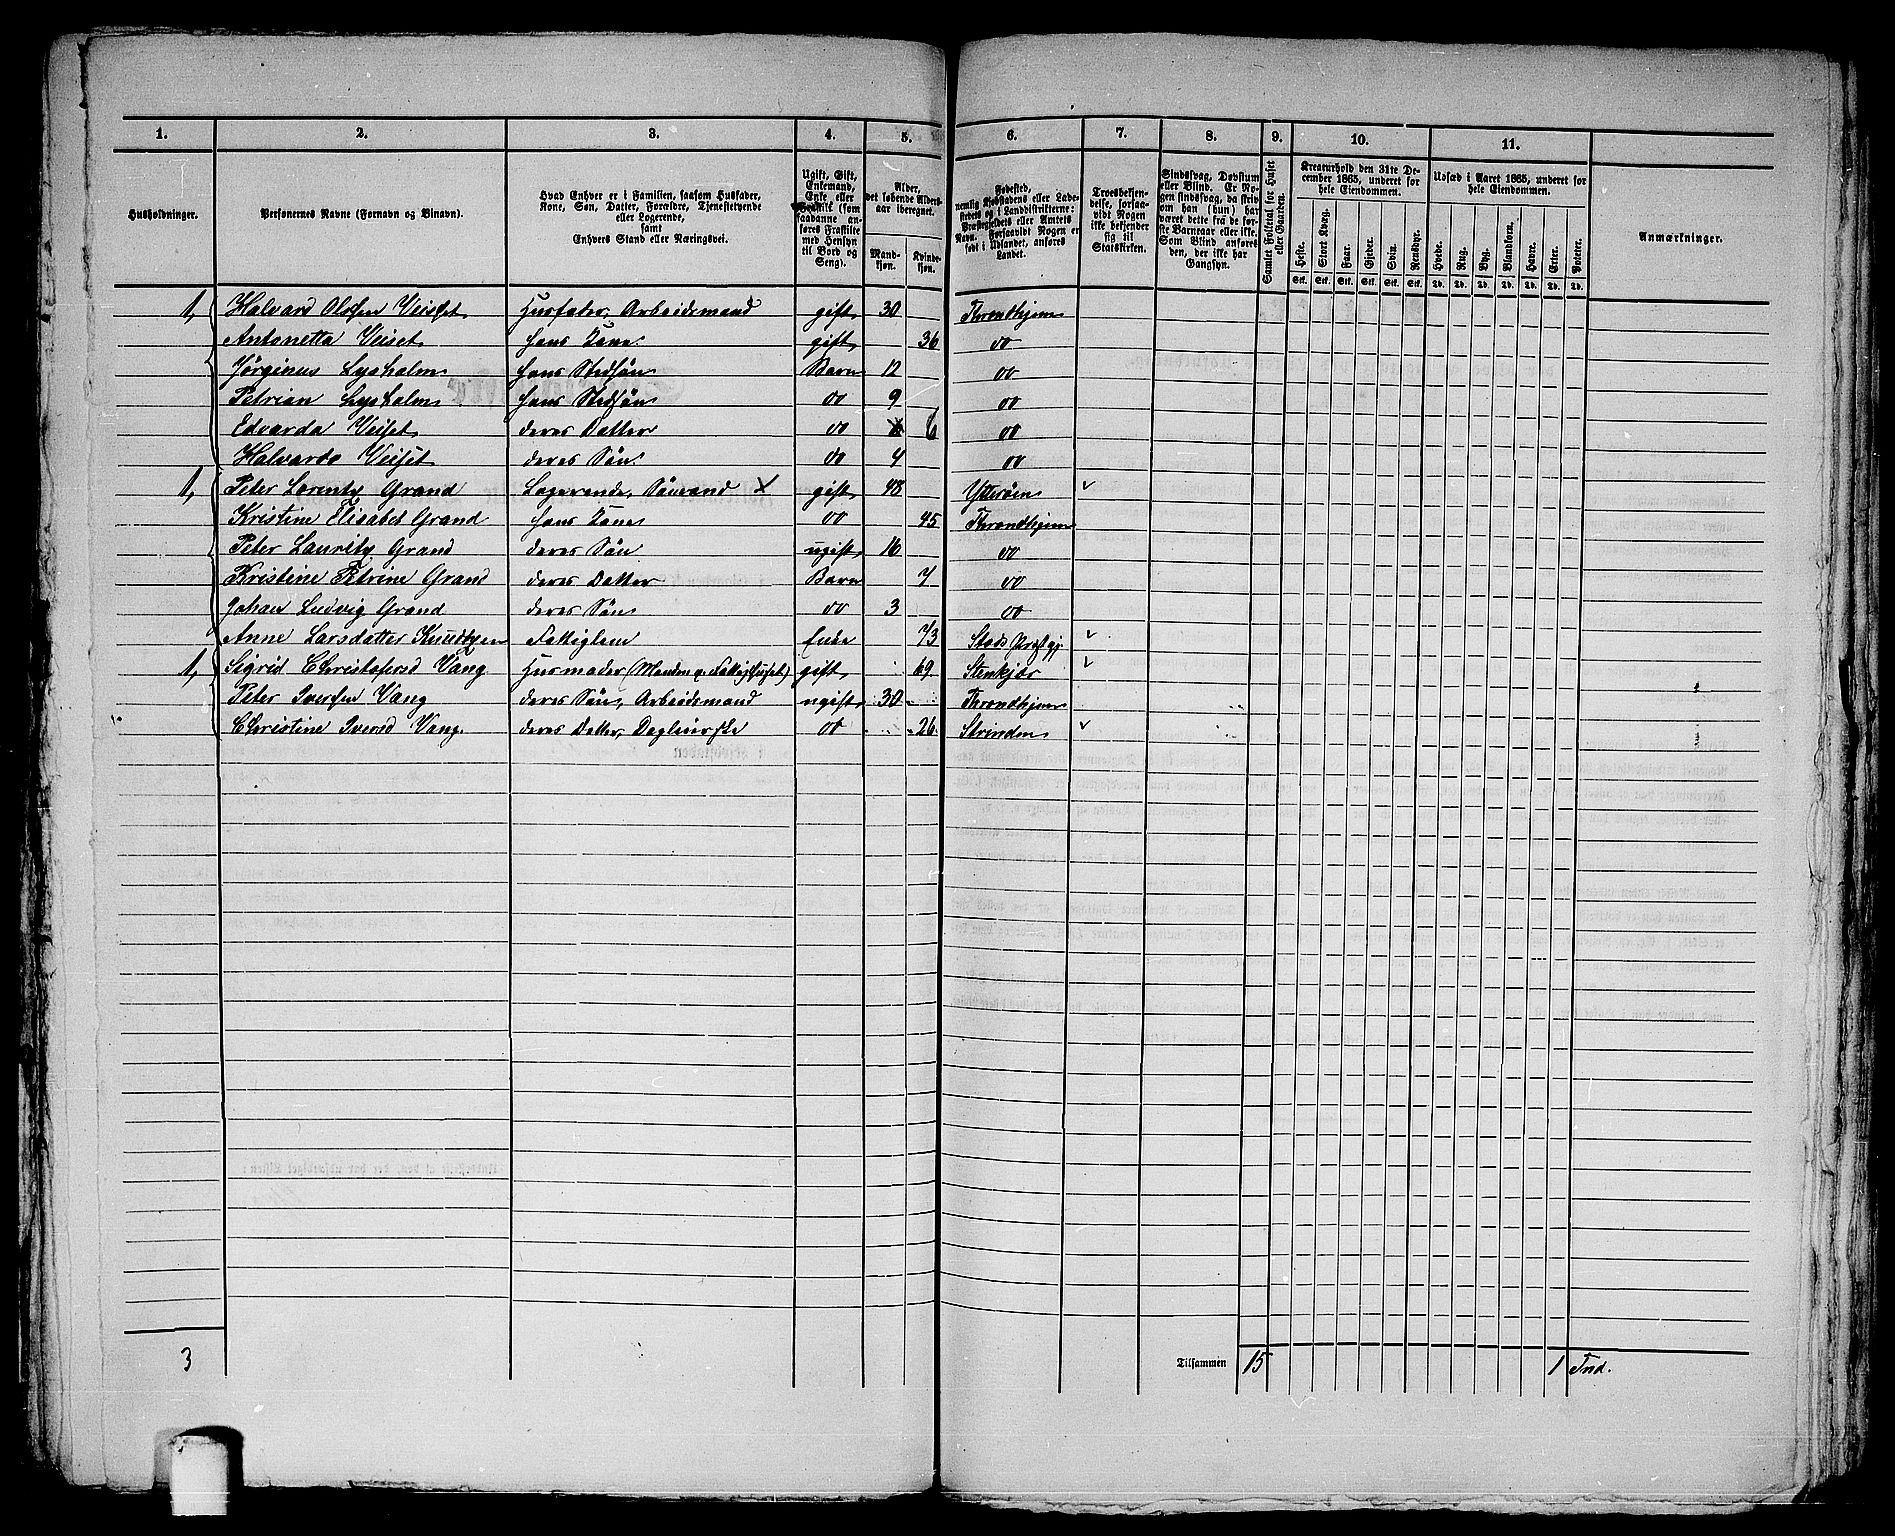 1. 2. 3. 4. 5. 6. 7. 8. 9. 10. 11.
Husholdninger.
Personernes Navne (Fornavn og Binavn).
Hvad Enhver er i Familien, saasom Husfader,
Kone, Søn, Datter, Forældre, Tjenestetyende
eller Logerende,
samt
Enhvers Stand eller Næringsvei.
Ugift, Gift,
Enkemand,
Enke eller
Fraskilt (som
saadanne an-
føres Fraskilte
med Hensyn
til Bord og
Seng).
Alder,
det løbende Alders-
aar iberegnet.
Mand-
kjøn.
Kvinde-
kjøn.
Fødested,
nemlig Kjøbstadens eller Lade-
stedets og i Landdistrikterne:
Præstegjeldets eller Amtets
Navn. Forsaavidt Nogen er
født i Udlandet, anføres
Landet.
Troesbekjen-
delse, forsaa-
vidt Nogen
ikke bekjender
sig til
Statskirken.
Sindssvag, Døvstum
eller Blind. Er No-
gen sindssvag, da skriv
om han (hun) har
været dette fra de før-
ste Barneaar eller ikke.
Som Blind anføres
den, der ikke har
Gangsyn.
Samlet Folketal for Huset
eller Gaarden.
Kreaturhold den 31te De-
cember 1865, underet for
hele Eiendommen.
Heste. Stort Kvæg. Faar. Gjeder. Svin. Rensdyr.
Stk. Stk. Stk. Stk. Stk. Stk.
Udsæd i Aaret 1865, underet for
hele Eiendommen.
Hvede. Rug. Byg. Blandkorn. Havre. Erter. Poteter.
Td. Td. Td. Td. Td. Td. Td.
Anmærkninger.
1, Halvard Olsen Veiset Husfader, Arbeidsmand gift 30 Throndhjem
Antonetta Veiset hans Kone gift 36 do
Jørginus Lysholm hans Stedsøn Barn 12 do
Petrian Lysholm hans Stedsøn do 9 do
Edvarda Veiset deres Datter do 6 do
Halvardo Veiset deres Søn do 4 do
1, Peter Lorentz Grand Logerende, Sømand X gift 48 Ytterøen
Kristine Elisabet Grand hans Kone do 45 Throndhjem
Peter Lauritz Grand deres Søn ugift 16 do
Kristine Petrine Grand deres Datter Barn 7 do
Johan Ludvig Grand deres Søn do 3 do
Anne Larsdatter Fattiglem Enke 73 Stods Prstgj
1, Sigrid Christofersd Vang Husmoder (Manden p. Fattighuset) gift 69 Stenkjær
Peter Iversen Vang deres Søn, Arbeidsmand ugift 30 Throndhjem
Christine Iversd Vang deres Datter, Dagleierske do 26 Strinden
3 Tilsammen 15 1 Tnd.